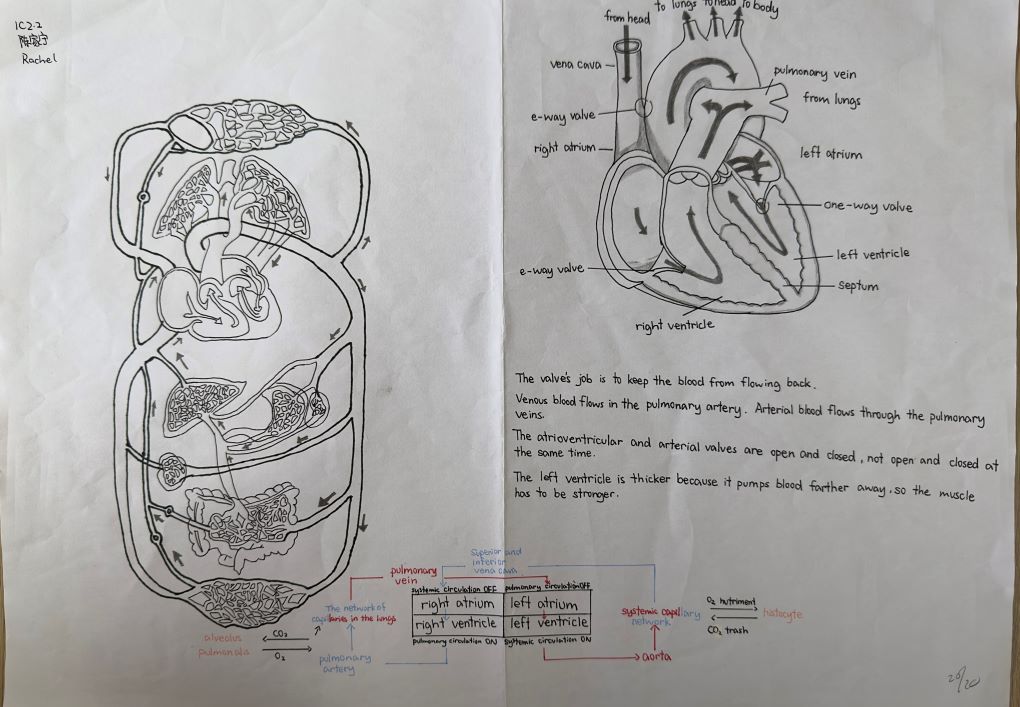 IC2.2
陈家宁
Rachel
to lungs to head to body
from head
vena cava
pulmonary vein
from lungs
e-way valve
right atrium
left atrium
one-way valve
left ventricle
e-way valve
septum
right ventricle
The valve's job is to keep the blood from flowing back.
Venous blood flows in the pulmonary artery. Arterial blood flows through the pulmonary
veins.
The atrioventricular and arterial valves are open and closed, not open and closed at
the same time.
The left ventricle is thicker because it pumps blood farther away, so the muscle
has to be stronger.
Superior and
inferior
vena cava
pulmonary
vein
systemic circulation OFF
pulmonary circulation OFF
The network of
capillaries in the lungs
right atrium
left atrium
right ventricle
left ventricle
pulmonary circulation ON
systemic circulation ON
systemic capillary
network
O₂ nutriment
CO₂ trash
histocyte
alveolus
pulmonalis
CO₂
O₂
pulmonary
artery
aorta
20/20